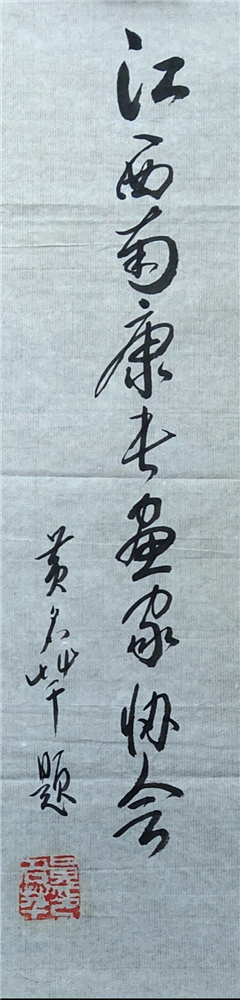 江西南康书画家协会
黄名芈题